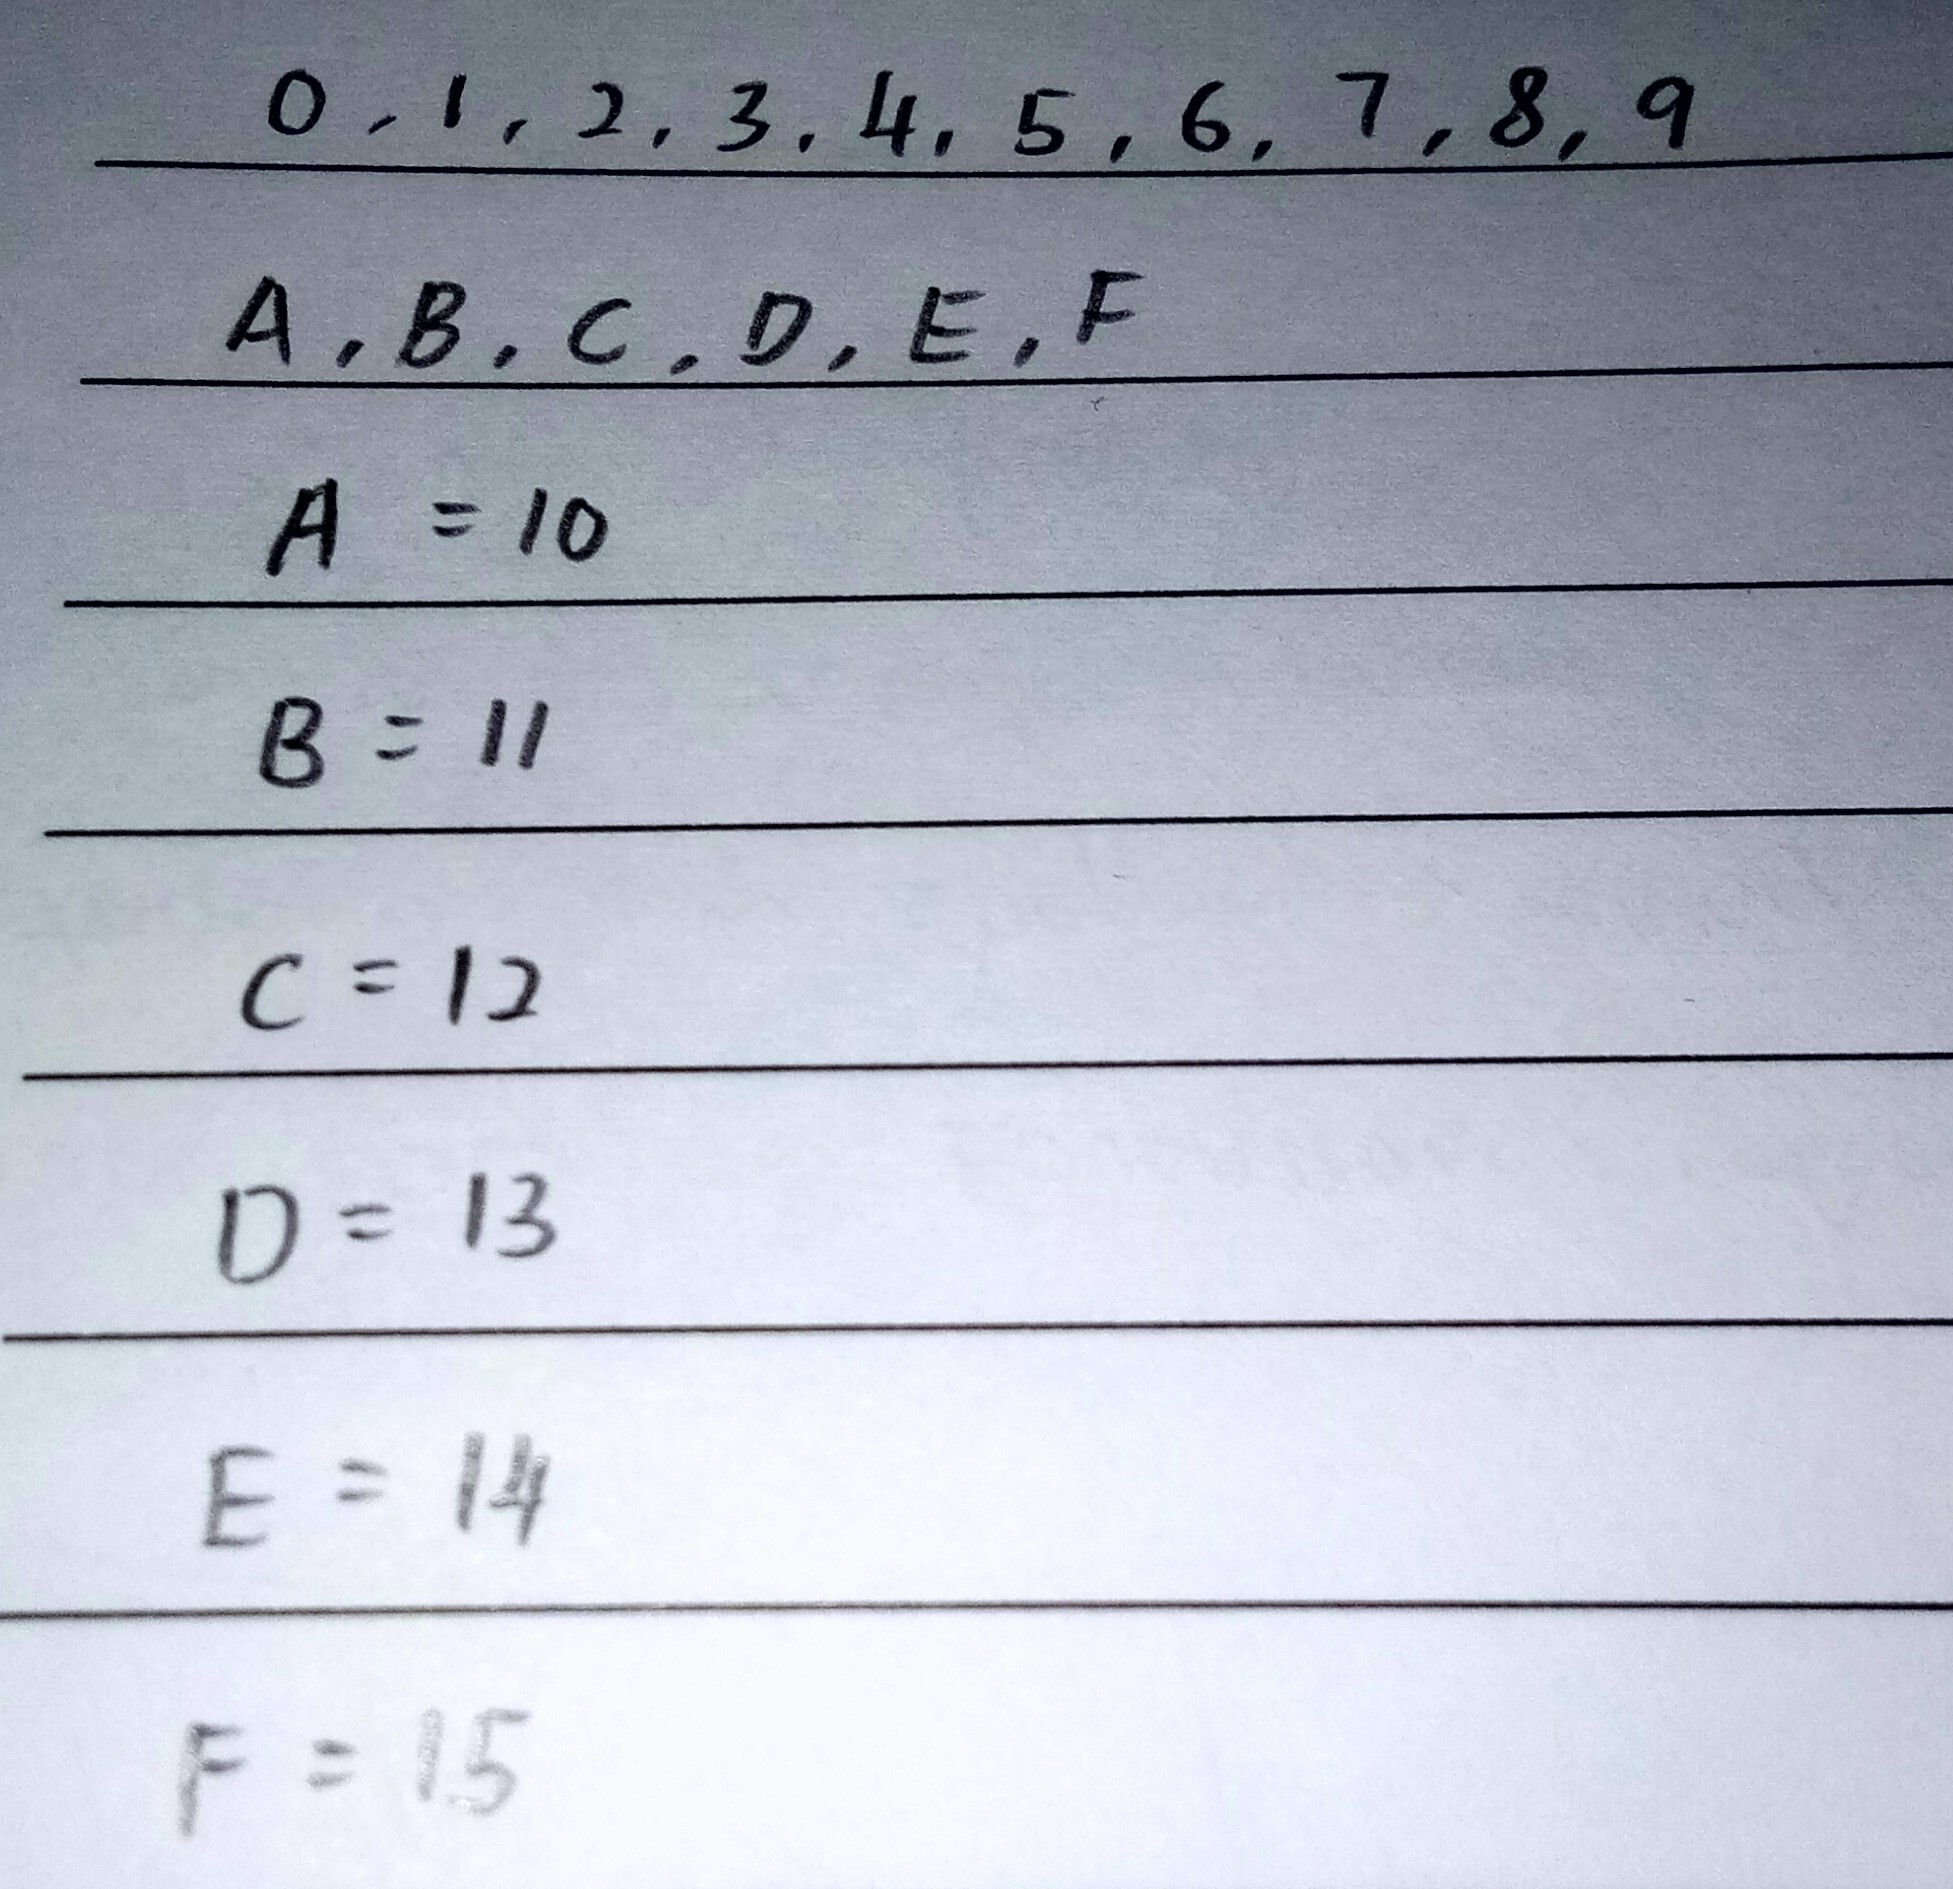 0, 1, 2, 3, 4, 5, 6, 7, 8, 9
A, B, C, D, E, F
A = 10
B = 11
C = 12
D = 13
E = 14
F = 15